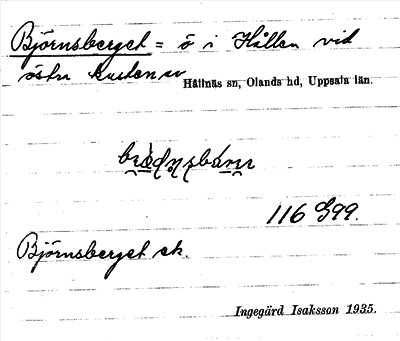 Björnsberget = ö i Hållen vid
östra kusten av
Hållnäs sn, Olands hd, Uppsala län.
116 G99.
Björnsberget ek.
Ingegärd Isaksson 1935.